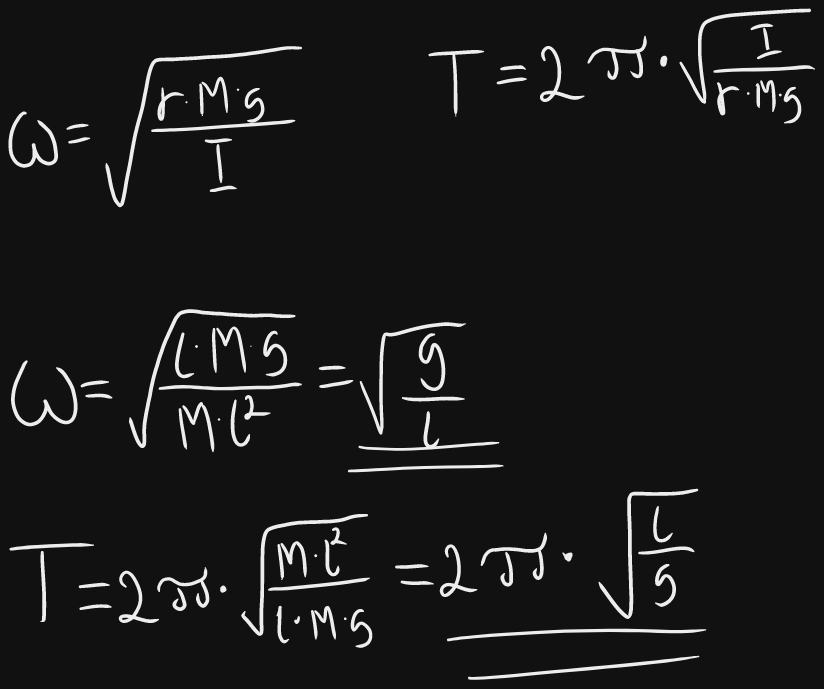 ω = √(r·M·g / I)    T = 2π·√(I / r·M·g)
ω = √(l·M·g / M·l²) = √(g / l)
T = 2π·√(M·l² / l·M·g) = 2π·√(l / g)